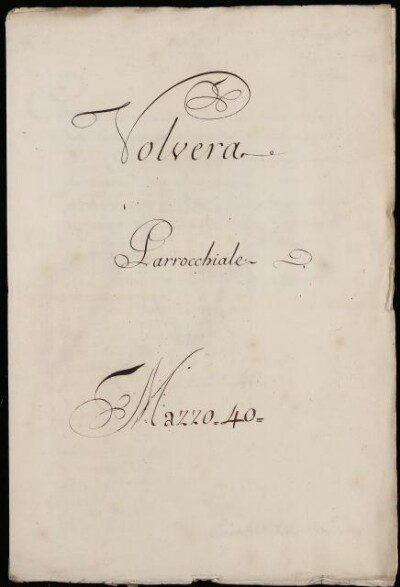 Volvera
Parrocchiale
Mazzo. 40=